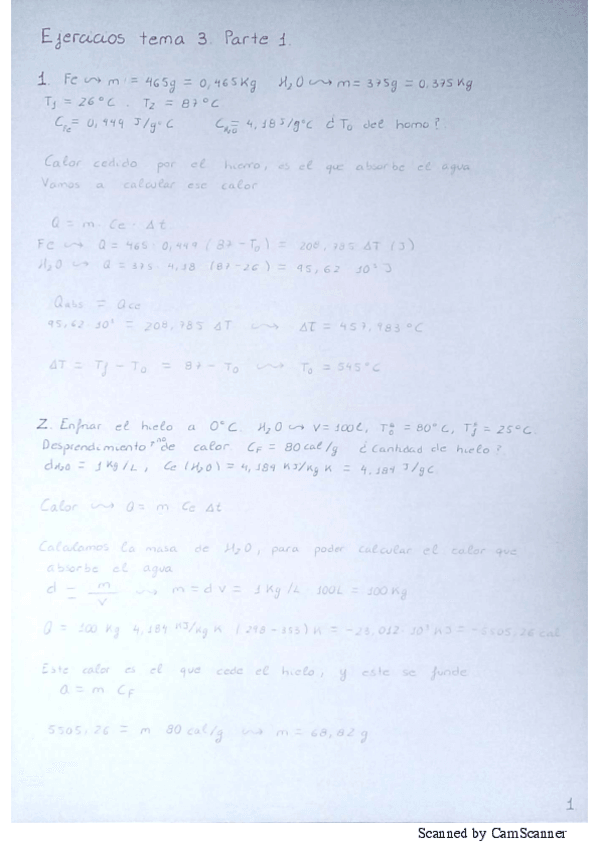 Ejercicios tema 3. Parte 1.
1. Fe ⇝ m = 465g = 0,465Kg H₂O ⇝ m = 375g = 0,375Kg
T₁ = 26°C. T₂ = 87°C
C_Fe = 0,449 J/g°C C_H₂O = 4,18 J/g°C ¿T₀ del horno?
Calor cedido por el hierro, es el que absorbe el agua
Vamos a calcular ese calor
Q = m · Ce · Δt
Fe ⇝ Q = 465 · 0,449 (87 - T₀) = 208,785 ΔT (J)
H₂O ⇝ Q = 375 · 4,18 (87-26) = 95,62 · 10³ J
Qabs = Qce
95,62 · 10³ = 208,785 ΔT ⇝ ΔT = 457,983°C
ΔT = Tf - T₀ = 87 - T₀ ⇝ T₀ = 545°C
2. Enfriar el hielo a 0°C. H₂O ⇝ V = 100L, T₀ = 80°C, Tf = 25°C.
Desprendimiento no de calor. CF = 80 cal/g ¿Cantidad de hielo?
dH₂O = 1 Kg/L, Ce (H₂O) = 4,184 KJ/Kg K = 4,184 J/gC
Calor ⇝ Q = m Ce Δt
Calculamos la masa de H₂O, para poder calcular el calor que
absorbe el agua
d = m/v ⇝ m = d v = 1 Kg/L · 100L = 100 Kg
Q = 100 Kg 4,184 KJ/Kg K (298 - 353) K = -23,012 · 10³ KJ = -5505,26 cal
Este calor es el que cede el hielo, y este se funde
Q = m CF
5505,26 = m 80 cal/g ⇝ m = 68,82 g
1
Scanned by CamScanner